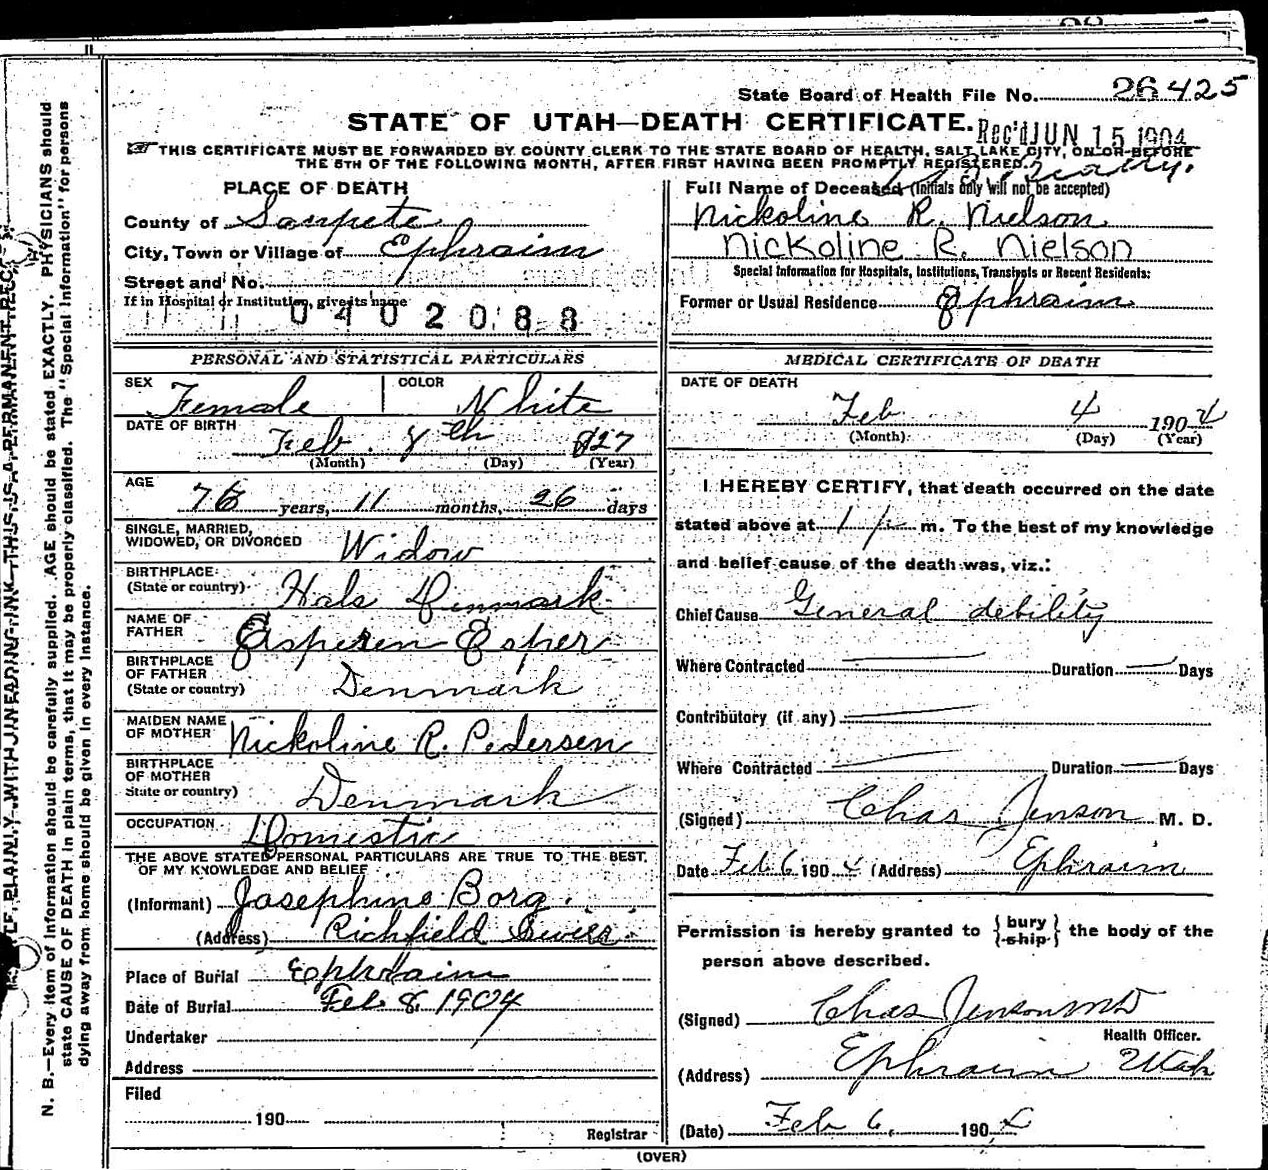 State Board of Health File No. 26425
STATE OF UTAH—DEATH CERTIFICATE.
Rec'd JUN 15 1904
THIS CERTIFICATE MUST BE FORWARDED BY COUNTY CLERK TO THE STATE BOARD OF HEALTH, SALT LAKE CITY, ON OR BEFORE
THE 5TH OF THE FOLLOWING MONTH, AFTER FIRST HAVING BEEN PROMPTLY REGISTERED.
PLACE OF DEATH
County of Sanpete
City, Town or Village of Ephraim
Street and No.
If in Hospital or Institution, give its name
0402088
Full Name of Deceased (Initials only will not be accepted)
Nickoline R. Nielson
Nickoline R. Nielson
Special Information for Hospitals, Institutions, Transients or Recent Residents:
Former or Usual Residence Ephraim
PERSONAL AND STATISTICAL PARTICULARS
SEX Female COLOR White
DATE OF BIRTH
Feb. 8th 827
(Month) (Day) (Year)
AGE
76 years, 11 months, 26 days
SINGLE, MARRIED,
WIDOWED, OR DIVORCED Widow
BIRTHPLACE
(State or country) Hals Denmark
NAME OF
FATHER Espersen Esper
BIRTHPLACE
OF FATHER
(State or country) Denmark
MAIDEN NAME
OF MOTHER Nickoline R. Pedersen
BIRTHPLACE
OF MOTHER
State or country) Denmark
OCCUPATION Domestic
THE ABOVE STATED PERSONAL PARTICULARS ARE TRUE TO THE BEST
OF MY KNOWLEDGE AND BELIEF
(Informant) Josephine Borg.
(Address) Richfield Sevier.
Place of Burial Ephraim
Date of Burial Feb 8 1904
Undertaker
Address
Filed
190
Registrar
MEDICAL CERTIFICATE OF DEATH
DATE OF DEATH
Feb 4 1904
(Month) (Day) (Year)
I HEREBY CERTIFY, that death occurred on the date
stated above at 1 m. To the best of my knowledge
and belief cause of the death was, viz.:
Chief Cause General debility
Where Contracted Duration Days
Contributory (if any)
Where Contracted Duration Days
(Signed) Chas Jenson M. D.
Date Feb 6 1904 (Address) Ephraim
Permission is hereby granted to {bury
ship} the body of the
person above described.
(Signed) Chas Jenson MD
Health Officer.
(Address) Ephraim Utah
(Date) Feb 6, 1904
(OVER)
PLAINLY WITH UNFADING INK—THIS IS A PERMANENT REC
N. B.—Every item of information should be carefully supplied. AGE should be stated EXACTLY. PHYSICIANS should
state CAUSE OF DEATH in plain terms, that it may be properly classified. The "Special Information" for persons
dying away from home should be given in every instance.